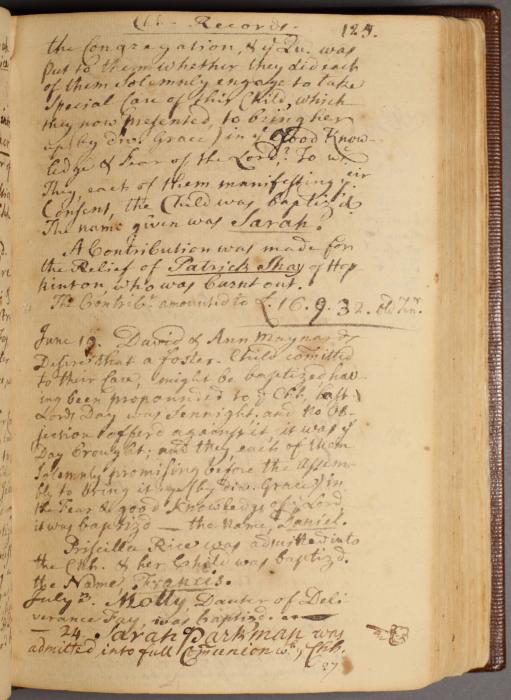 Chh. Records. 125.
the Congregation, & yᵉ Qu. was
put to them whether they did each
of them Solemnly engage to take
Special Care of this Child, which
they now presented, to bring her
up (by div. Grace) in yᵉ good Know-
ledge & Fear of the Lord? To wᶜ
They each of them manifesting yʳ
Consent, the Child was baptiz'd.
The name given was Sarah.
A Contribution was made for
the Relief of Patrick Shay of Hop
kinton, who was burnt out.
The Contribⁿ amounted to £16. 9. 32. Old Tenʳ.
June 19. David & Ann Maynard
Desires that a foster Child comitted
to their Care, might be baptized hav-
ing been propounded to yᵉ Chh. last
Lords Day was Sennight. and no ob-
jection offerd against it it was yˢ
Day brought; and they each of them
Solemnly promising before the Assem-
bly to bring it up (by div. Grace) in
the Fear & good Knowledge of yᵉ Lord
it was baptizd — the name, Daniel.
Priscilla Rice was admitted into
the Chh. & her Child was baptizd.
the Name, Francis.
July 3. Molly, Dauter of Deli
verance Fay, was baptizd.
— 24. Sarah Parkman was
admitted into full Comunion wᵗ yᵉ Chh.
27